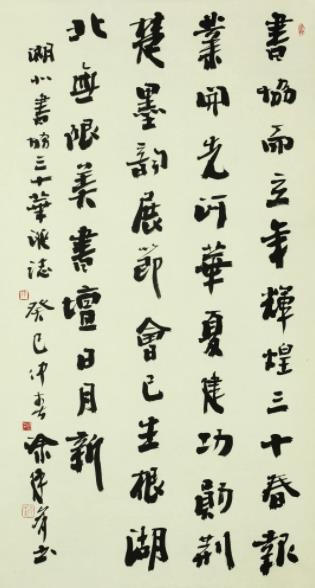 書協而立年輝煌三十春報
業開先河華夏建功勛荊
楚墨韵展節會已生根湖
北無限美書壇日月新
湖北書協三十華誕誌 癸巳仲春 书